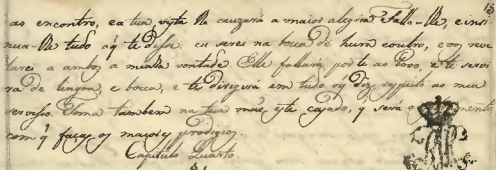 13
ao encontro, e a tua vista lhe cauzará a maior alegria. Falla-lhe, e insi
nua-lhe tudo o q̃ te disse: eu serei na boca de hum e outro, e vos reve
larei a ambos a minha vontade. Elle fallará por ti ao Povo, e te servi
rá de lingoa, e boca, e te dirigirá em tudo o q̃ diz respeito ao meu
serviço. Toma tambem na tua mão este cajado, q̃ será o
com q̃ faças os maiores prodigios.
Capitulo Quarto.